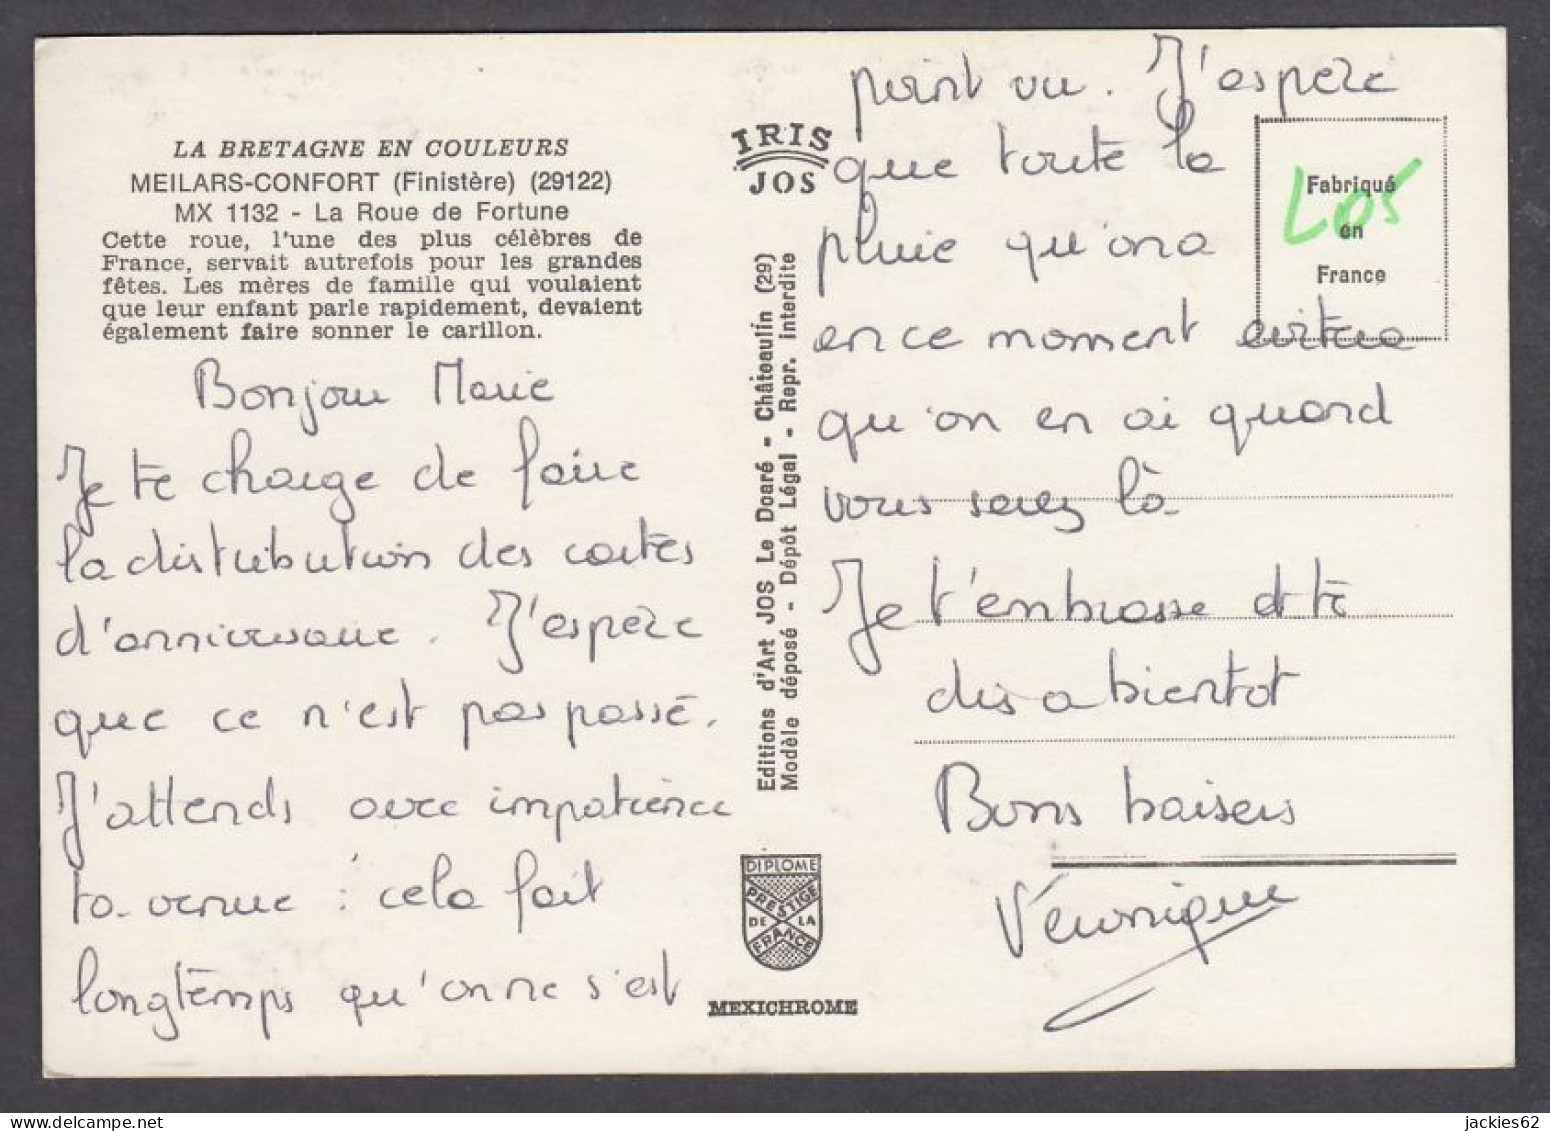 LA BRETAGNE EN COULEURS
MEILARS-CONFORT (Finistère) (29122)
MX 1132 - La Roue de Fortune
Cette roue, l'une des plus célèbres de
France, servait autrefois pour les grandes
fêtes. Les mères de famille qui voulaient
que leur enfant parle rapidement, devaient
également faire sonner le carillon.
Bonjour Marie
Je te charge de faire
la distribution des cartes
d'anniversaire. J'espère
que ce n'est pas passé.
J'attends avec impatience
ta venue : cela fait
longtemps qu'on ne s'est
IRIS
JOS
Editions d'Art JOS Le Doaré - Châteaulin (29)
Modèle déposé - Dépôt Légal - Repr. interdite
DIPLOME
PRESTIGE
DE LA
FRANCE
MEXICHROME
point vu. J'espère
que toute la
pluie qu'on a
en ce moment
qu'on en ai quand
vous serez là
Je t'embrasse et te
dis a bientot
Bons baisers
Véronique
Fabriqué
en
France
jackies62